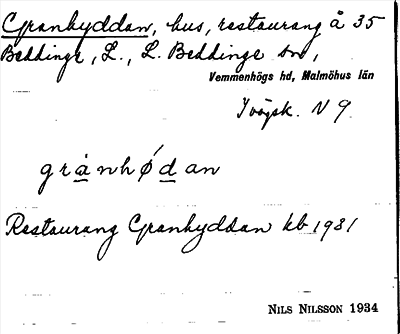 Granhyddan, hus, restaurang å 35
Beddinge, L., L. Beddinge sn,
Vemmenhögs hd, Malmöhus län
N 9.
grànhø̀dan
Restaurang Granhyddan kb 1931
NILS NILSSON 1934